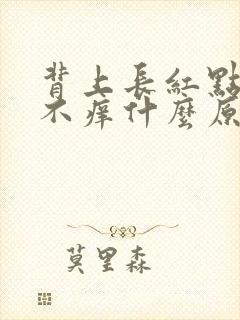 背上長紅點
不痒什麼原
莫里森